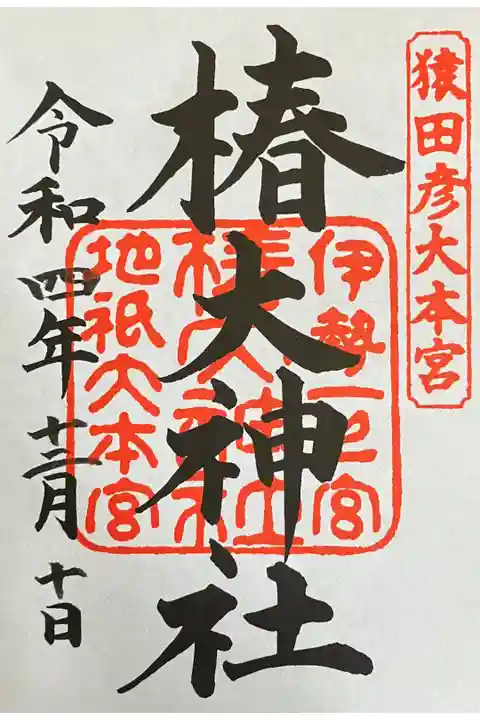 猿田彦大本宮
椿大神社
伊勢一宮
椿大神社
地祇大本宮
令和四年十二月十日